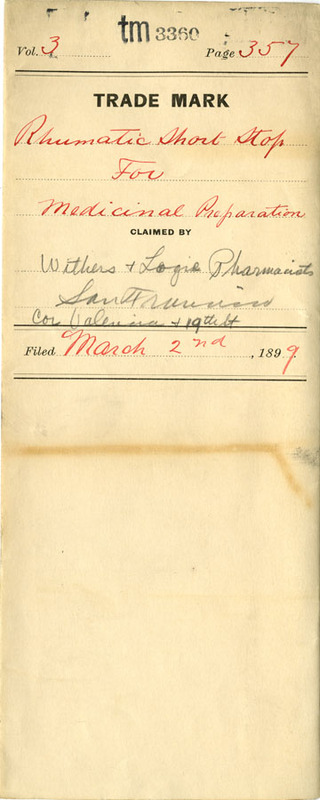 tm 3360
Vol. 3 Page 357
TRADE MARK
Rhumatic Short Stop
For
Medicinal Preparation
CLAIMED BY
Withers + Logie Pharmacists
San Francisco
Cor Valencia + 19th St
Filed March 2nd, 1899.